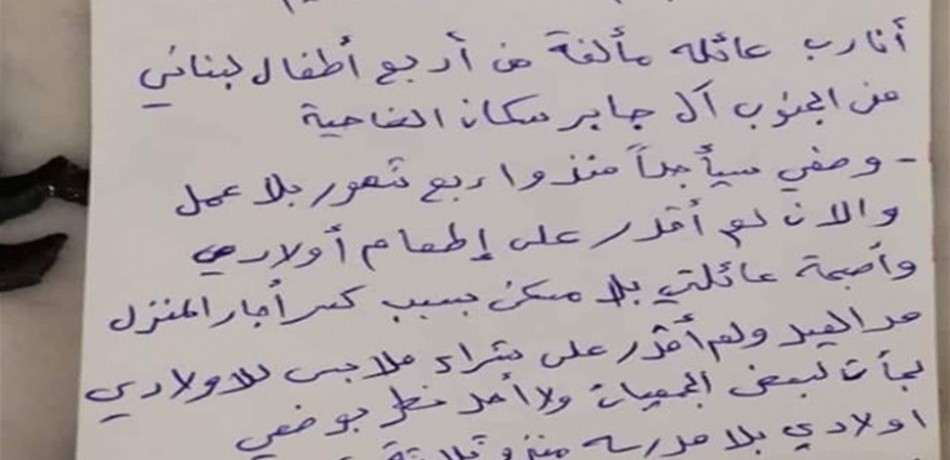 أنا رب عائله مألفة من أربع أطفال لبناني
من الجنوب آل جابر سكان الضاحية
- وضعي سيأ جداً منذو اربع شهور بلا عمل
والان لم أقدر على إطعام أولادي
وأصبحة عائلتي بلا مسكن بسبب كسر أجار المنزل
مر العيد ولم أقدر على شراء ملابس للاولادي
لجأت لبعض الجمعيات ولا أحد نظر بوضعي
اولادي بلا مدرسه منذو